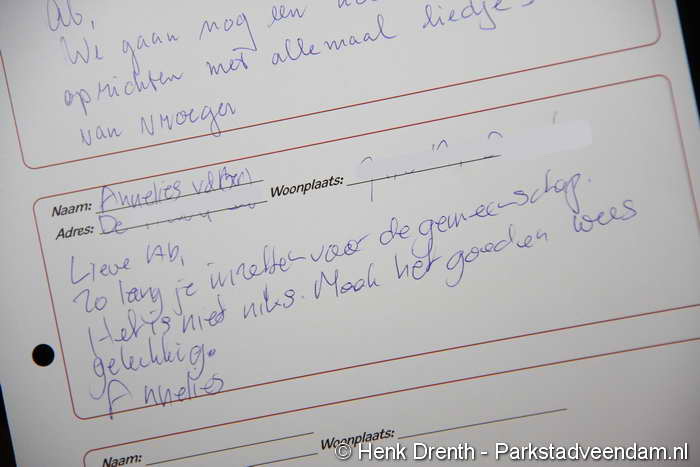 Ab,
We gaan nog een
oprichten met allemaal liedjes
van vroeger
Naam: Annelies vd Berg Woonplaats:
Adres: De
Lieve Ab,
Zo lang je inzetten voor de gemeenschap.
Het is niet niks. Maak het goed en wees
gelukkig.
Annelies
Naam: Woonplaats:
© Henk Drenth - Parkstadveendam.nl